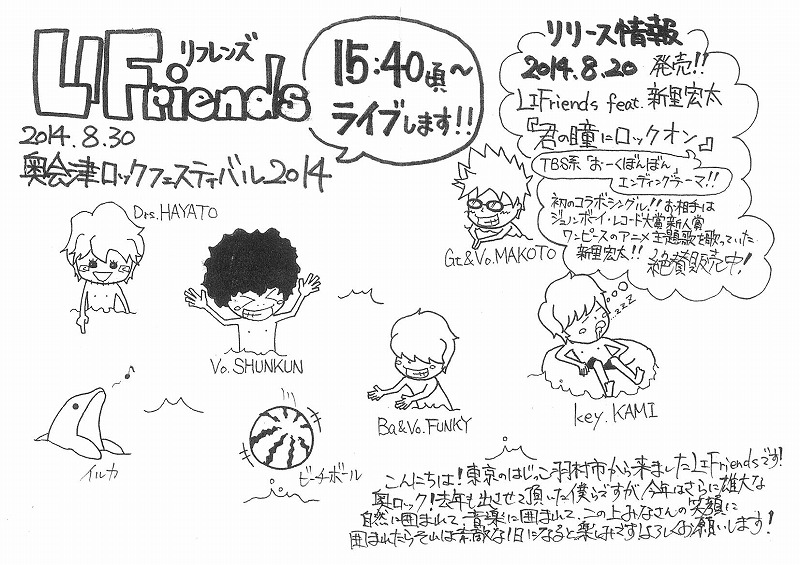 LIFriends
リフレンズ
2014.8.30
奥会津ロックフェスティバル2014
15:40頃〜
ライブします!!
リリース情報
2014.8.20 発売!!
LIFriends feat. 新里宏太
『君の瞳にロックオン』
TBS系 "おーくぼんぼん"
エンディングテーマ!!
初のコラボシングル!! お相手は
ジュノンボーイ・レコード大賞新人賞
ワンピースのアニメ主題歌を歌っていた
新里宏太!! 絶賛販売中!
Drs.HAYATO
Vo.SHUNKUN
Gt&Vo.MAKOTO
Ba&Vo.FUNKY
zzZ
key.KAMI
イルカ
ビーチボール
こんにちは!東京のはじっこ羽村市から来ましたLIFriendsです!
奥ロック!去年も出させて頂いた僕らですが、今年はさらに雄大な
自然に囲まれて、音楽に囲まれて、この上みなさんの笑顔に
囲まれたらそれは素敵な1日になると楽しみです!よろしくお願いします!